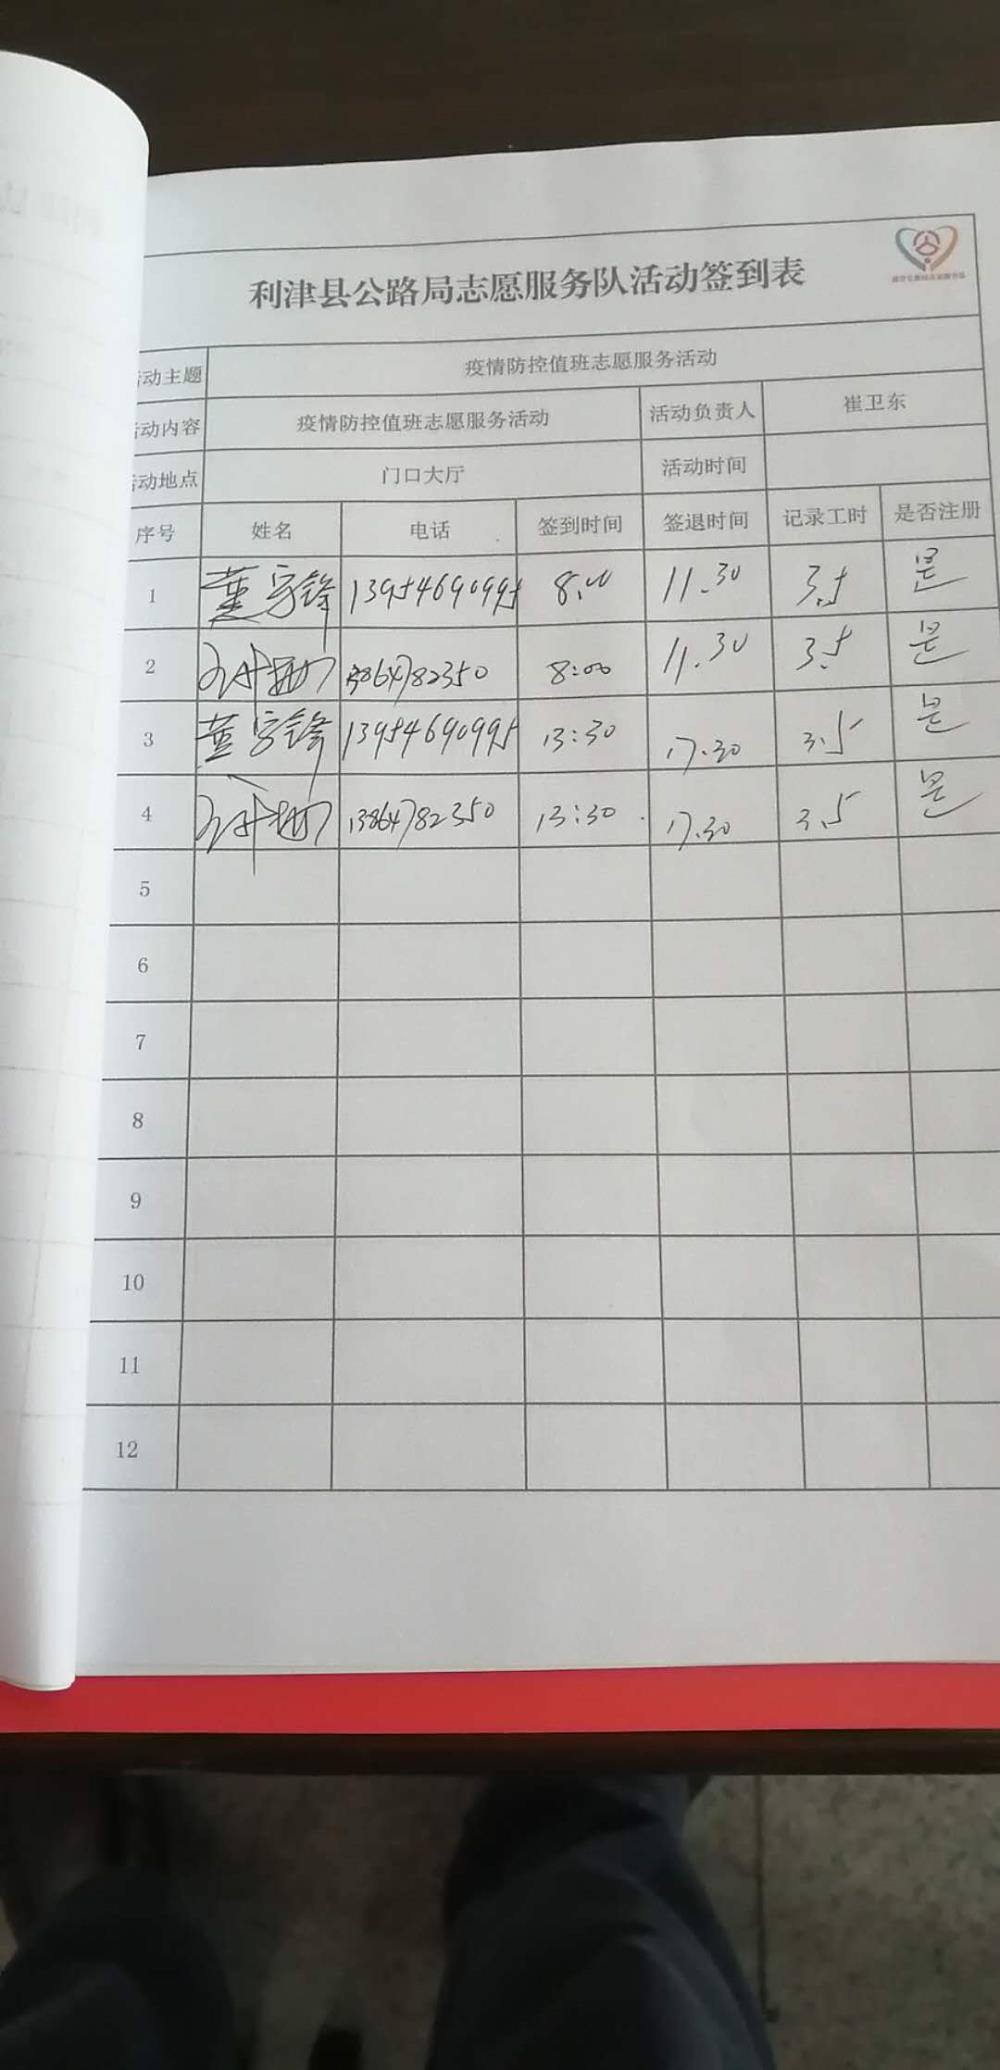 利津县公路局志愿服务队活动签到表
活动主题 疫情防控值班志愿服务活动
活动内容 疫情防控值班志愿服务活动 活动负责人 崔卫东
活动地点 门口大厅 活动时间
序号 姓名 电话 签到时间 签退时间 记录工时 是否注册
1 董宝锋 13954690995 8:00 11.30 3.5 是
2 13864782350 8:00 11.30 3.5 是
3 董宝锋 13954690995 13:30 17.30 3.5 是
4 13864782350 13:30 17.30 3.5 是
5
6
7
8
9
10
11
12